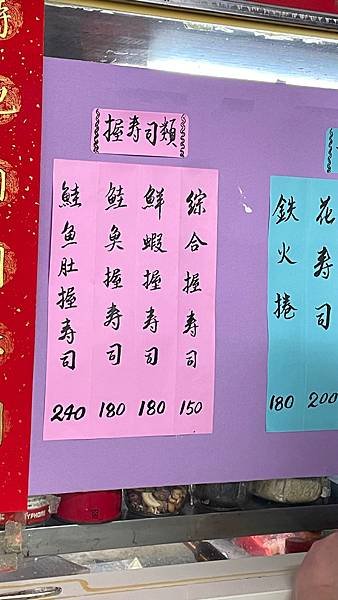 握寿司類
綜合握寿司
150
鮮蝦握寿司
180
鮭魚握寿司
180
鮭魚肚握寿司
240
花寿司
200
鉄火捲
180